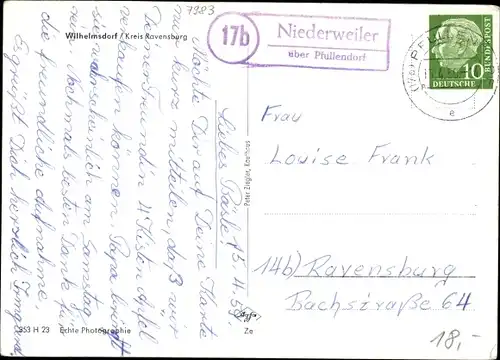 7983
Wilhelmsdorf / Kreis Ravensburg
17b
Niederweiler
über Pfullendorf
10
DEUTSCHE
BUNDESPOST
e
Liebes Bäsle! 15.4.58.
Möchte Dir auf Deine Karte
nur kurz mitteilen, daß wir
Deiner Freundin 4 Kisten Äpfel
verkaufen können. Papa bringt
sie wahrscheinlich am Samstag.
Nochmals besten Dank für
die freundliche Aufnahme.
Es grüßt Dich herzlich Irmgard
Peter Ziegler, Kaufhaus
Frau
Louise Frank
14b) Ravensburg
Bachstraße 64
18,-
353 H 23 Echte Photographie
Agfa
Ze